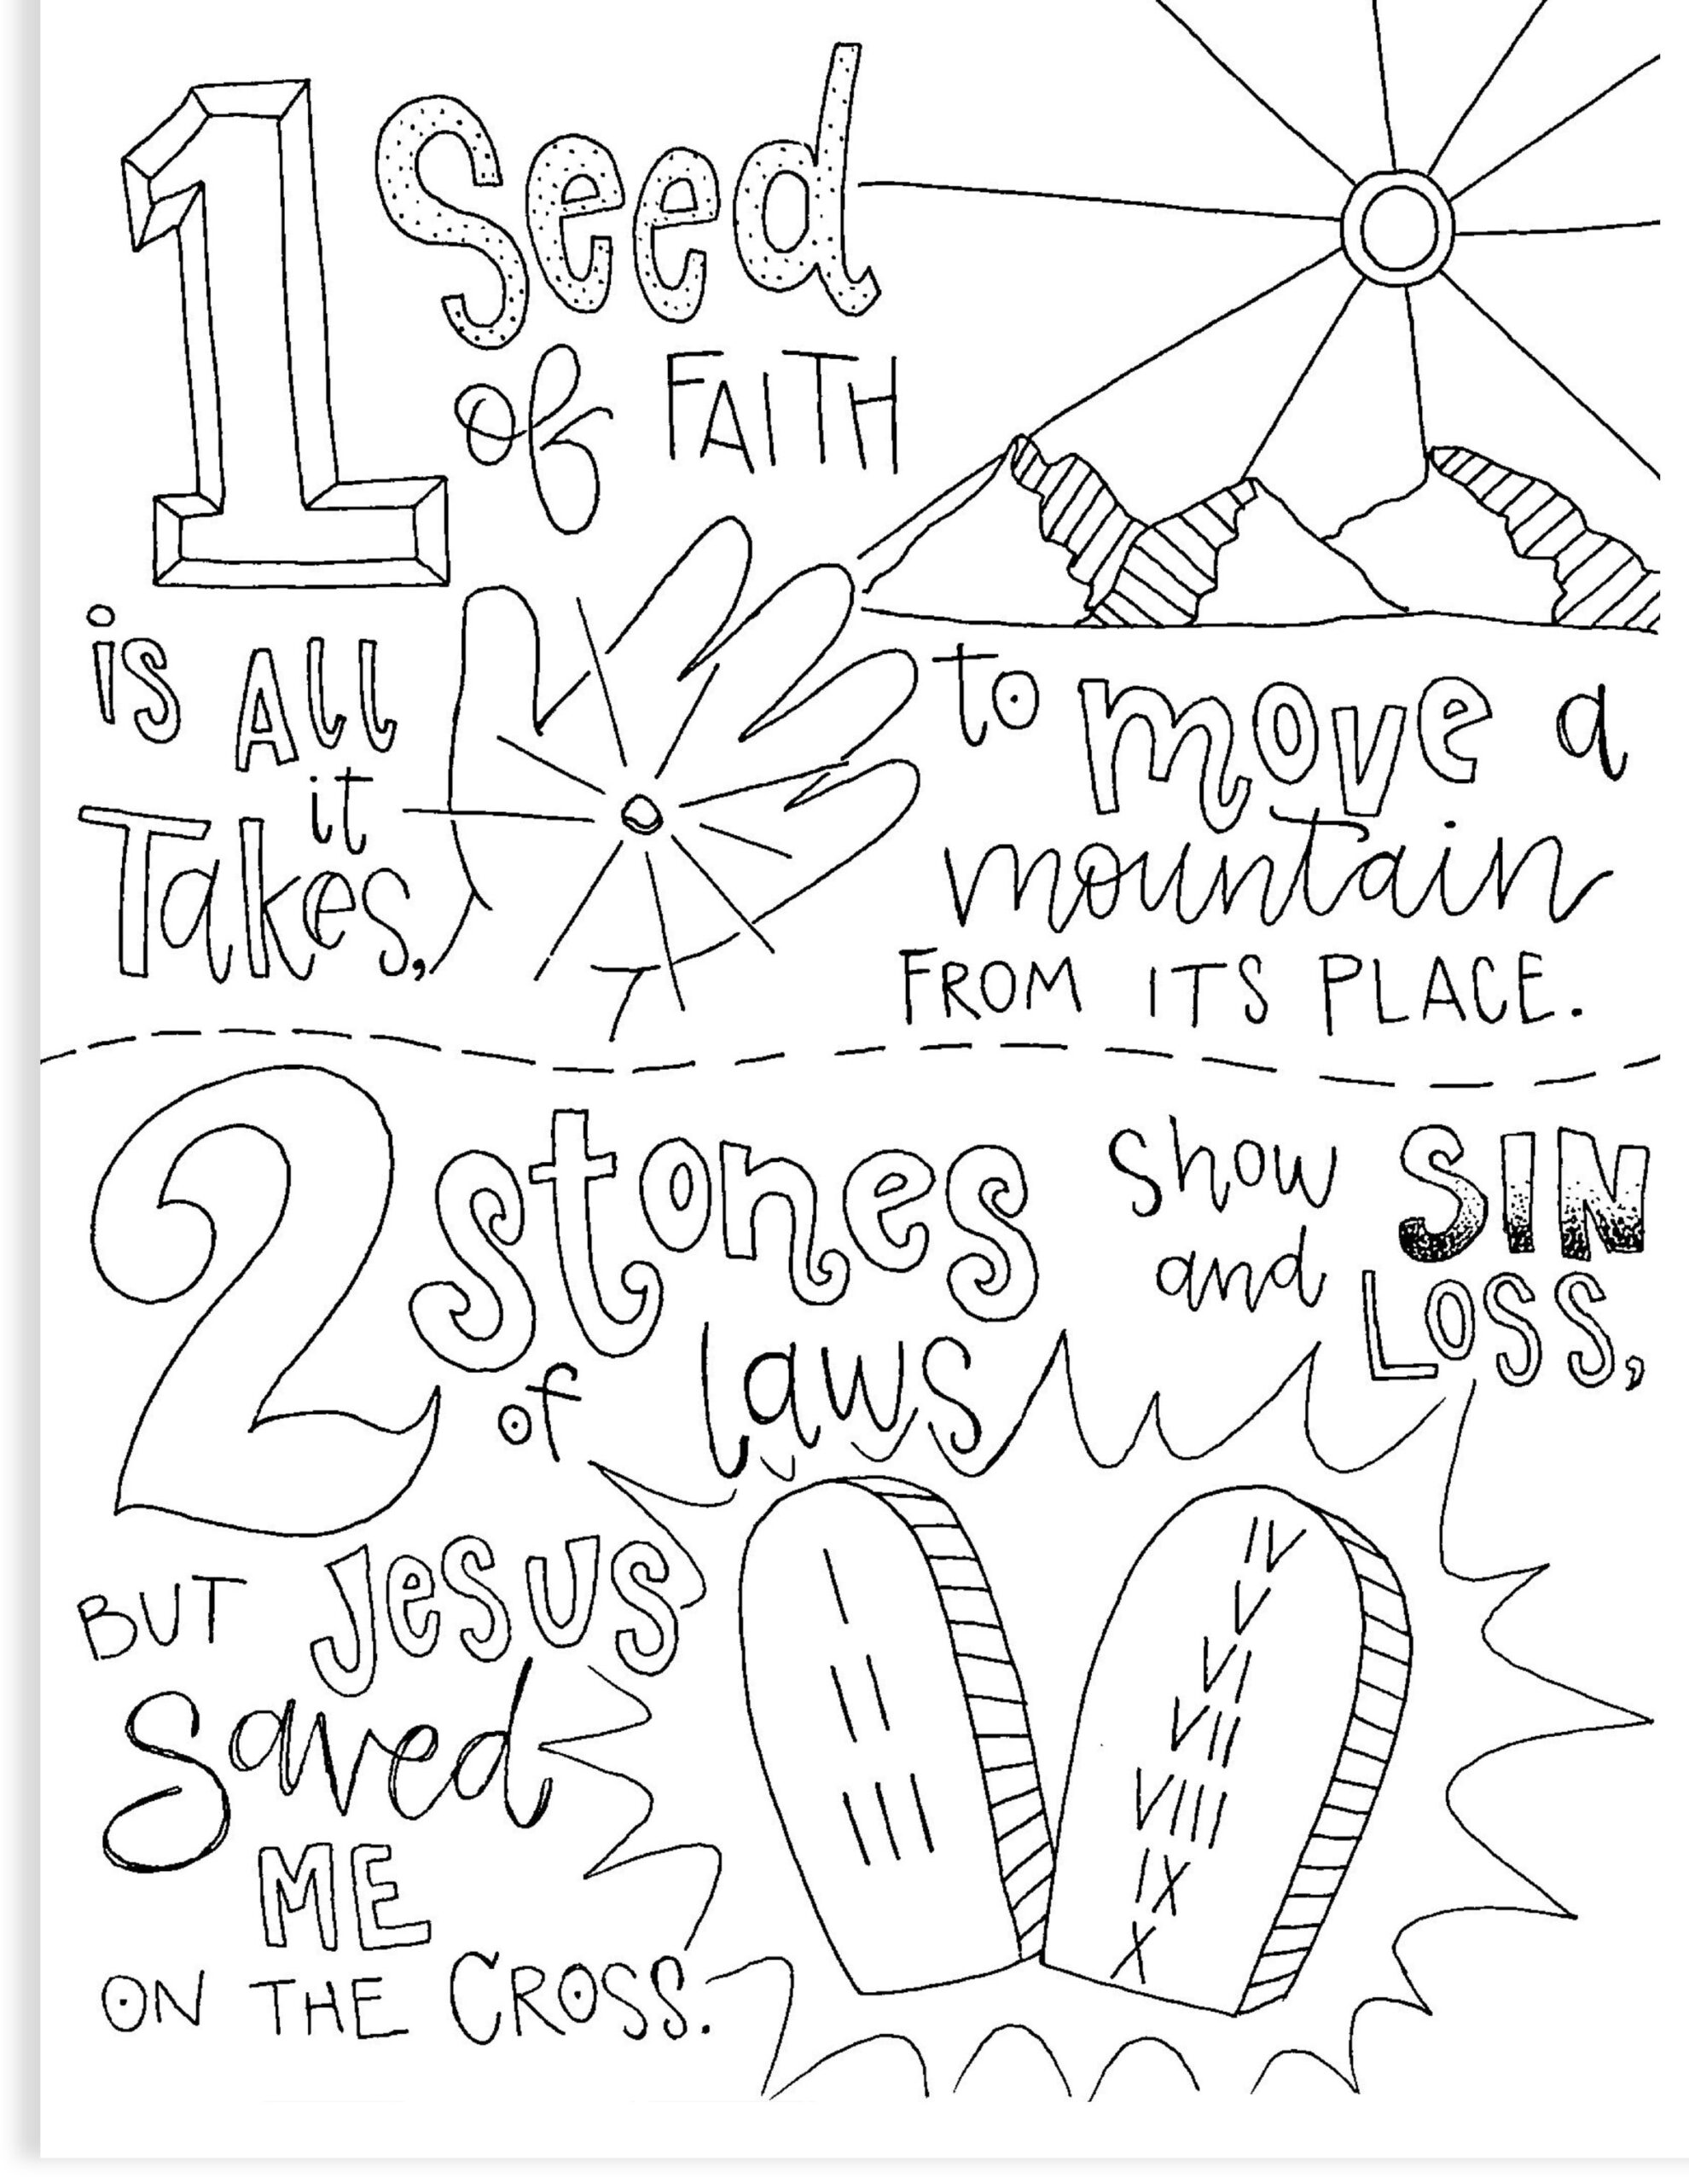 1 Seed
of FAITH
is All
it
Takes,
to move a
mountain
FROM ITS PLACE.
2 stones
of laws
show SIN
and LOSS,
BUT Jesus
Saved
ME
ON THE CROSS.
I
II
III
IV
V
VI
VII
VIII
IX
X